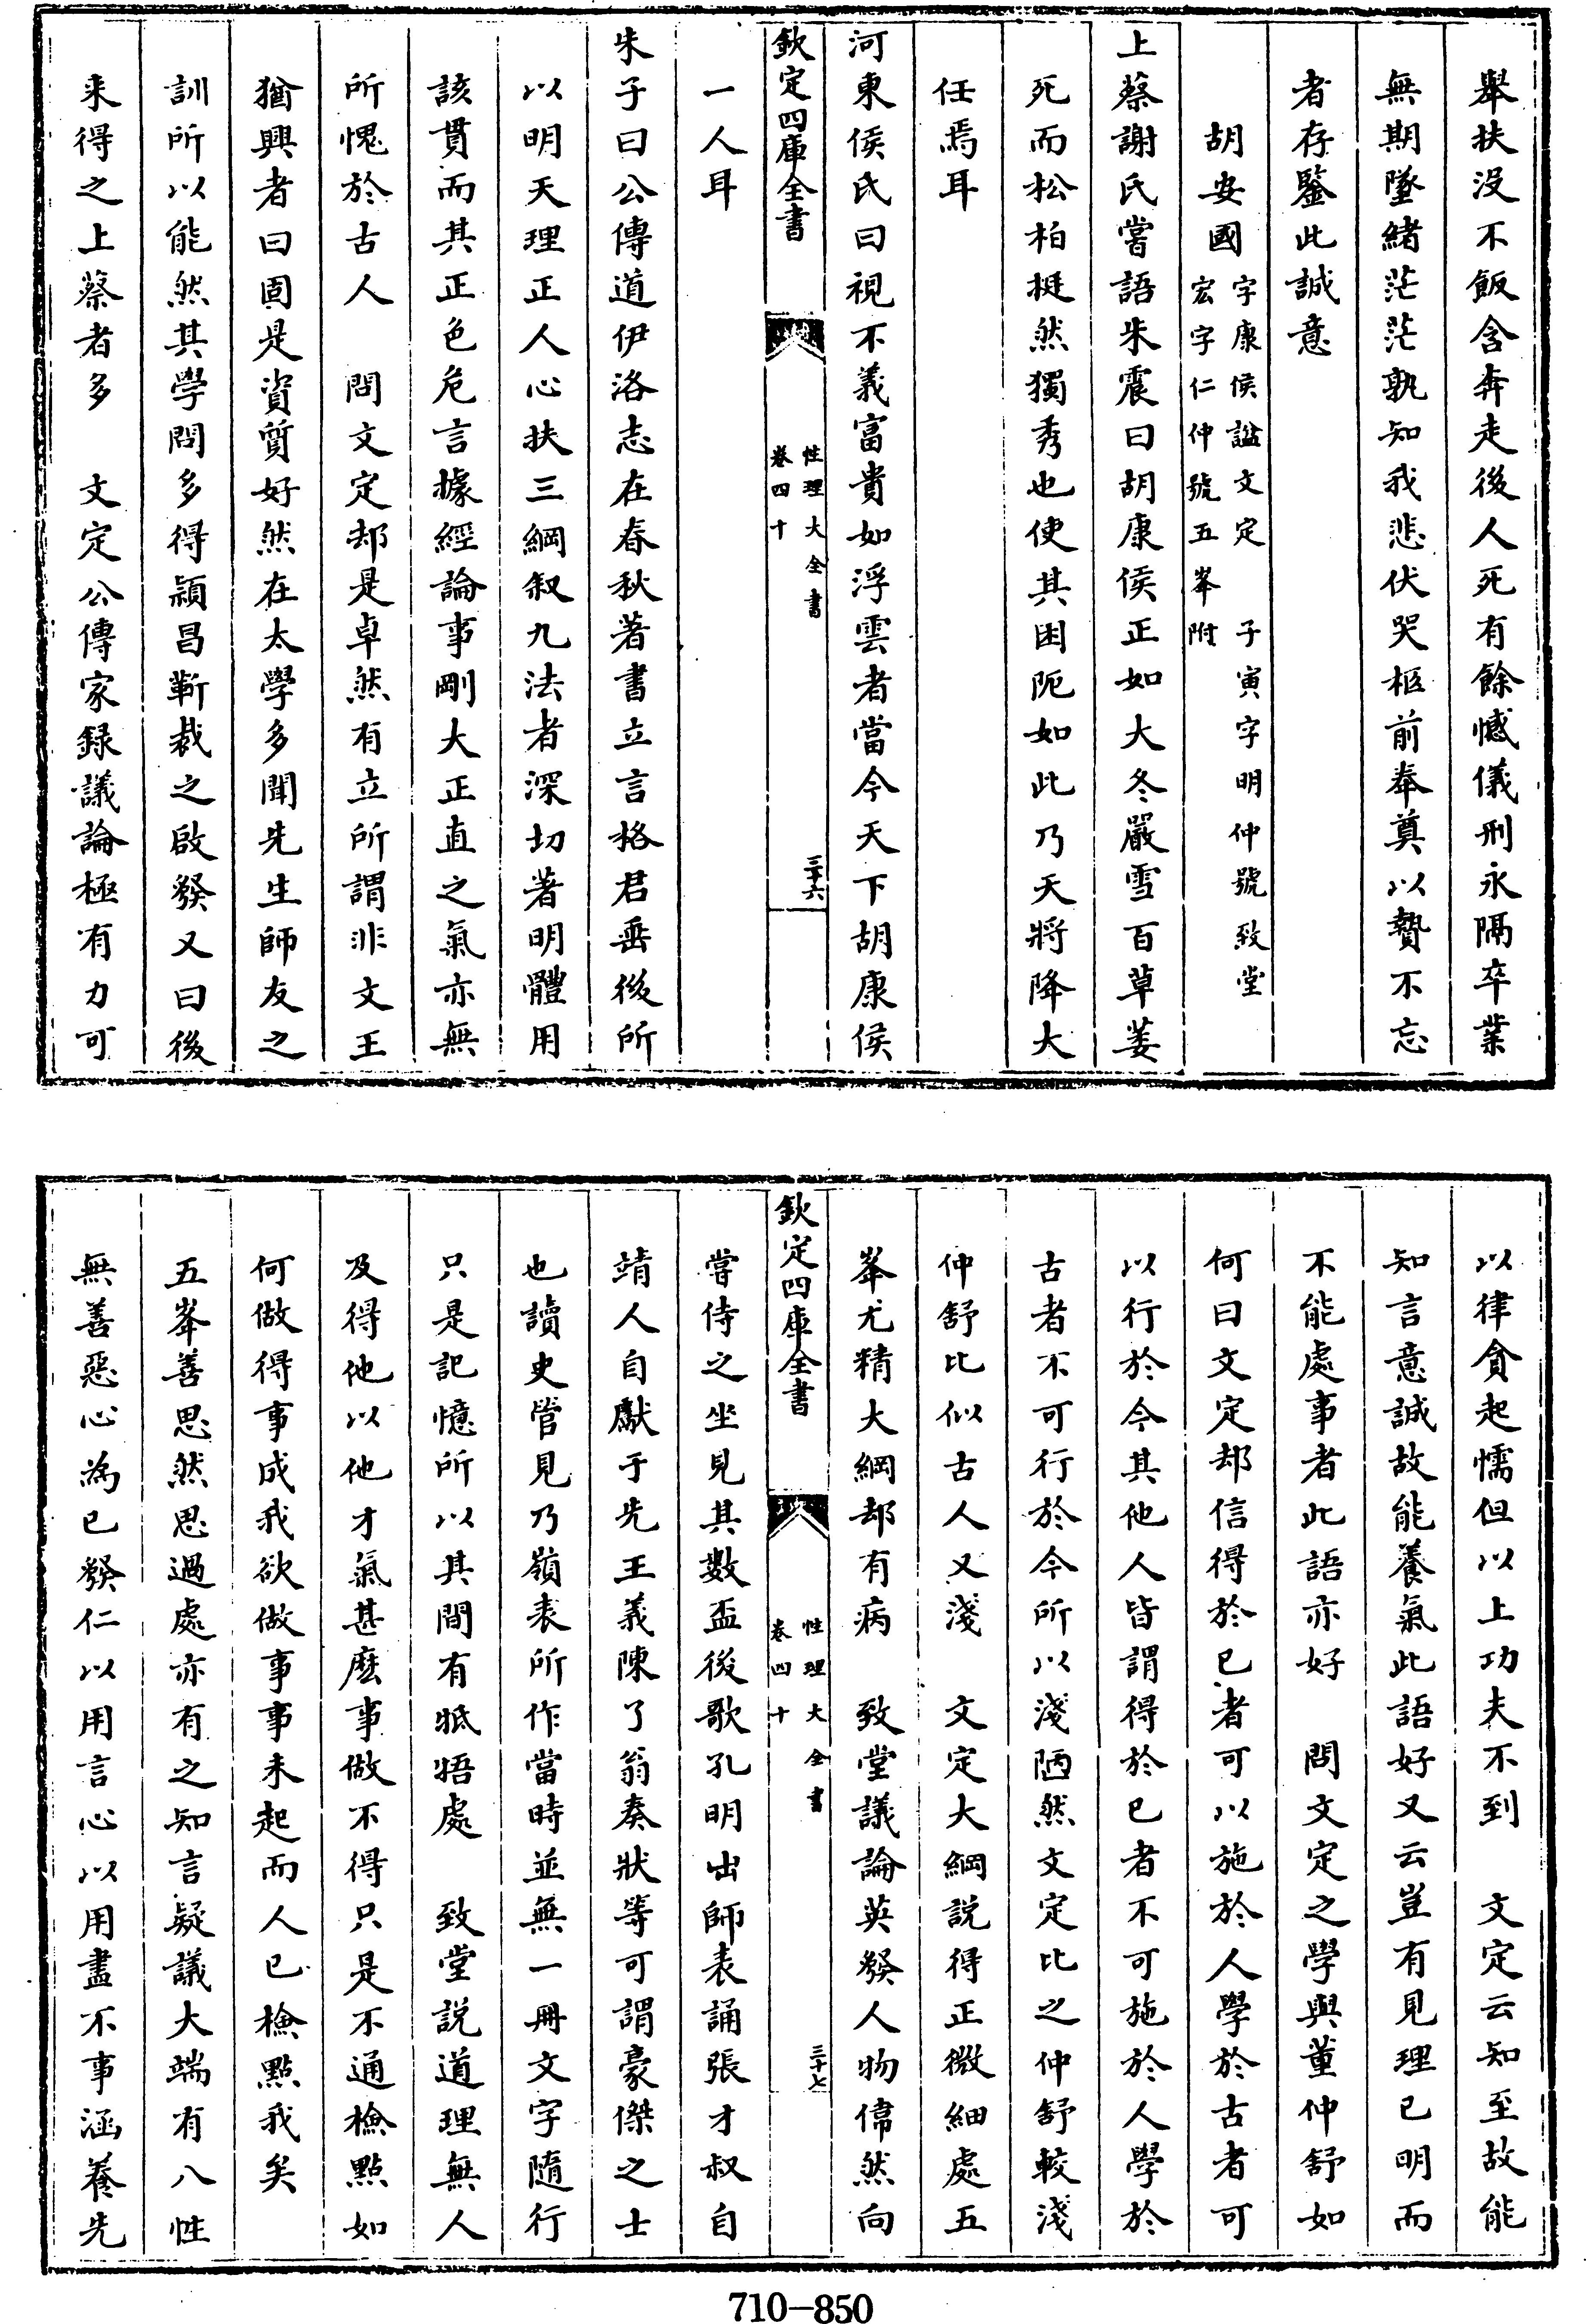 舉扶没不飯含奔走後人死有餘憾儀刑永隔卒業
無期墜緒茫茫孰知我悲伏哭柩前奉奠以贄不忘
者存鑒此誠意
胡安國字康侯諡文定 子寅字明仲號致堂
宏字仁仲號五峯附
上蔡謝氏嘗語朱震曰胡康侯正如大冬嚴雪百草萎
死而松柏挺然獨秀也使其困阨如此乃天將降大
任焉耳
河東侯氏曰視不義富貴如浮雲者當今天下胡康侯
欽定四庫全書
性理大全書
卷四十
三十六
一人耳
朱子曰公傳道伊洛志在春秋著書立言格君垂後所
以明天理正人心扶三綱叙九法者深切著明體用
該貫而其正色危言據經論事剛大正直之氣亦無
所愧於古人 問文定却是卓然有立所謂非文王
猶興者曰固是資質好然在太學多聞先生師友之
訓所以能然其學問多得潁昌靳裁之啟發又曰後
来得之上蔡者多 文定公傳家録議論極有力可
以律貪起懦但以上功夫不到 文定云知至故能
知言意誠故能養氣此語好又云豈有見理已明而
不能處事者此語亦好 問文定之學與董仲舒如
何曰文定却信得於已者可以施於人學於古者可
以行於今其他人皆謂得於已者不可施於人學於
古者不可行於今所以淺陋然文定比之仲舒較淺
仲舒比似古人又淺 文定大綱説得正微細處五
峯尤精大綱却有病 致堂議論英發人物偉然向
欽定四庫全書
性理大全書
卷四十
三十七
嘗侍之坐見其數盃後歌孔明出師表誦張才叔自
靖人自獻于先王義陳了翁奏狀等可謂豪傑之士
也讀史管見乃嶺表所作當時並無一冊文字隨行
只是記憶所以其間有牴牾處 致堂説道理無人
及得他以他才氣甚麽事做不得只是不通檢點如
何做得事成我欲做事事未起而人已檢點我矣
五峯善思然思過處亦有之知言疑議大端有八性
無善惡心為已發仁以用言心以用盡不事涵養先
710-850